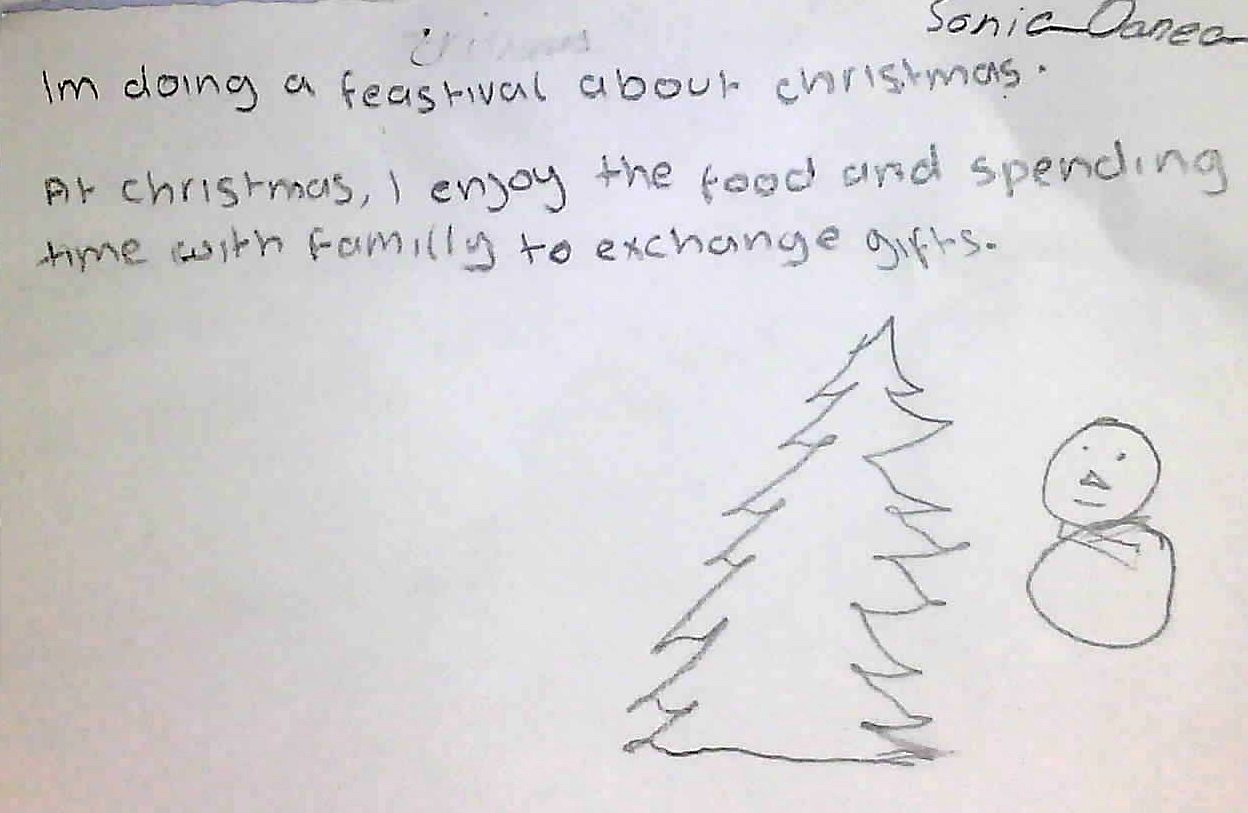 Sonia Danea
Im doing a feastival about christmas.
At christmas, I enjoy the food and spending
time with familly to exchange gifts.